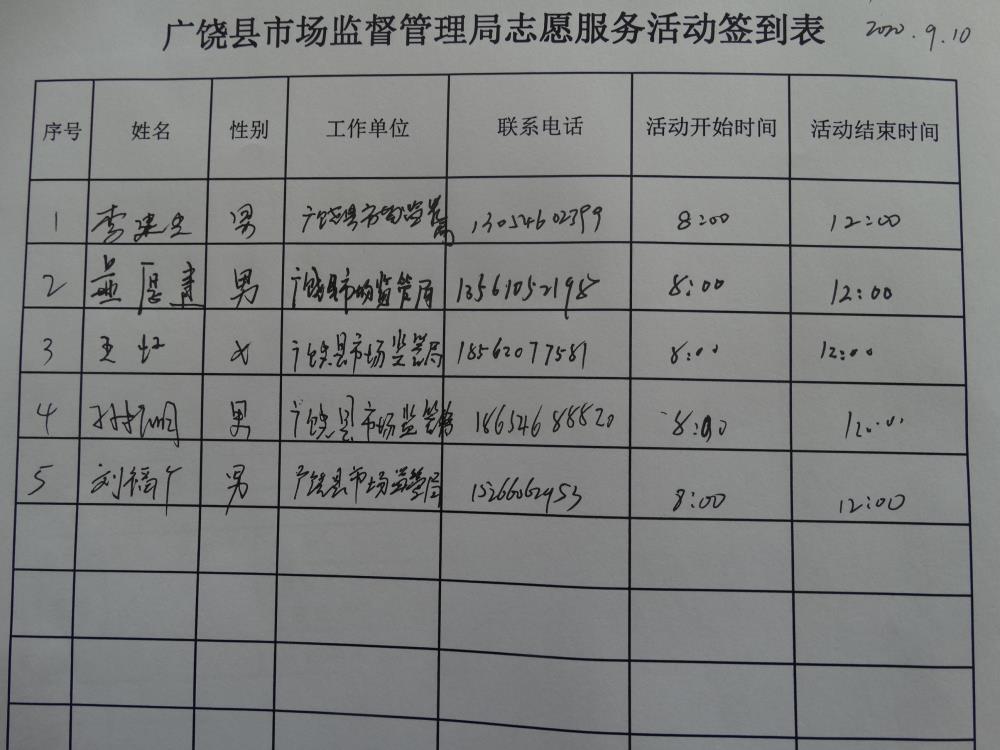 广饶县市场监督管理局志愿服务活动签到表 2020.9.10
序号 姓名 性别 工作单位 联系电话 活动开始时间 活动结束时间
1 李建 男 广饶县市场监管局 13054602399 8:00 12:00
2 男 广饶县市场监管局 13561052198 8:00 12:00
3 王 女 广饶县市场监管局 18562077581 8:00 12:00
4 男 广饶县市场监管局 18654688820 8:00 12:00
5 刘 男 广饶县市场监管局 15266062953 8:00 12:00